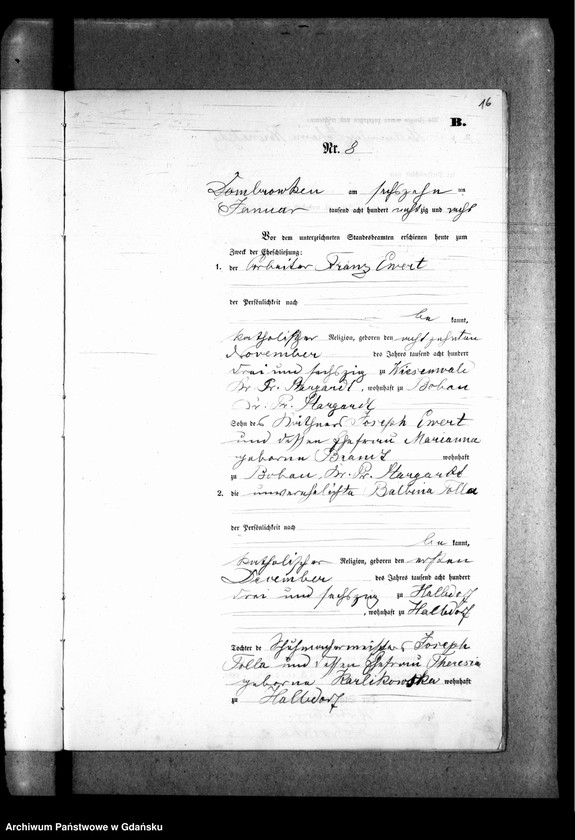 16
B.
Nr. 8
Dombrowken am sechszehn ten
Januar tausend acht hundert achtzig und sechs
Vor dem unterzeichneten Standesbeamten erschienen heute zum
Zweck der Eheschließung:
1. der Arbeiter Franz Ewert
der Persönlichkeit nach
be kannt,
katholischer Religion, geboren den achtzehnten
November des Jahres tausend acht hundert
drei und sechszig zu Wiesenwald
Kr. Pr. Stargardt, wohnhaft zu Bobau
Kr. Pr. Stargardt
Sohn des Käthners Joseph Ewert
und dessen Ehefrau Marianna
geborne Brandt wohnhaft
zu Bobau, Kr. Pr. Stargardt
2. die unverehelichte Balbina Tolla
der Persönlichkeit nach
be kannt,
katholischer Religion, geboren den ersten
December des Jahres tausend acht hundert
drei und sechszig zu Halbdorf
, wohnhaft zu Halbdorf
Tochter de Schuhmachermeisters Joseph
Tolla und dessen Ehefrau Theresia
geborne Karlikowska wohnhaft
zu Halbdorf
Archiwum Państwowe w Gdańsku